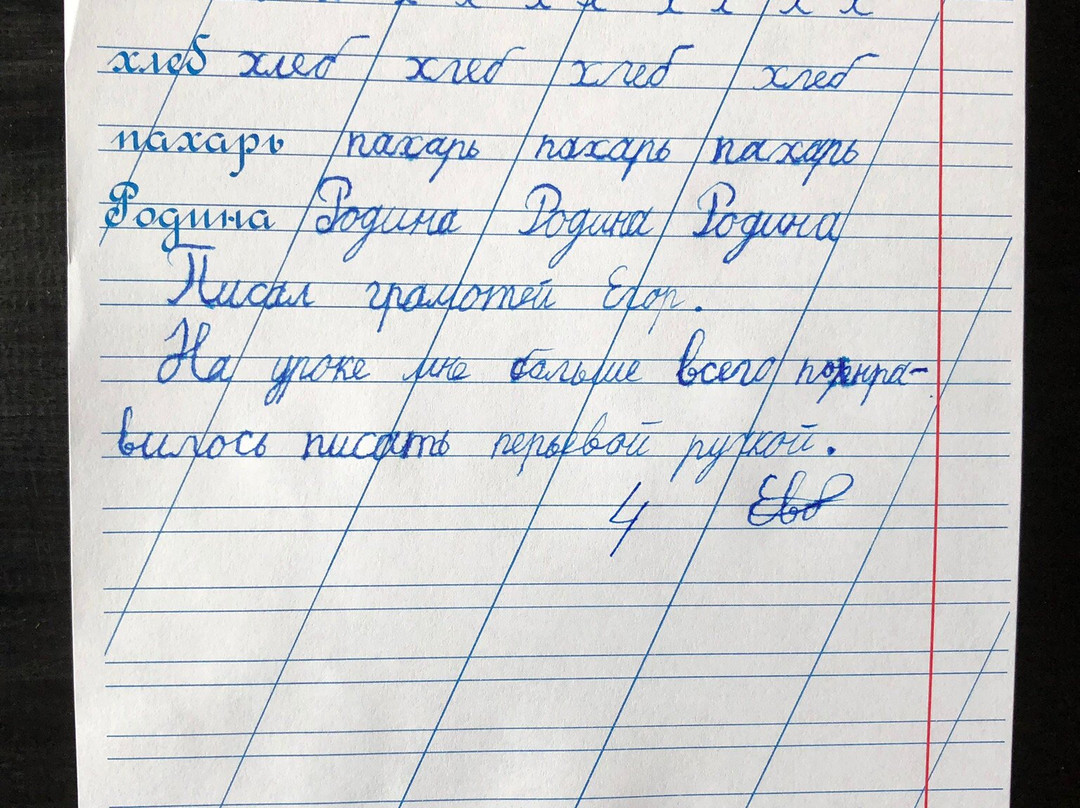 х х х х х х х х
хлеб хлеб хлеб хлеб хлеб
пахарь пахарь пахарь пахарь
Родина Родина Родина Родина
Писал грамотей Егор.
На уроке мне больше всего понра-
вилось писать перьевой ручкой.
4